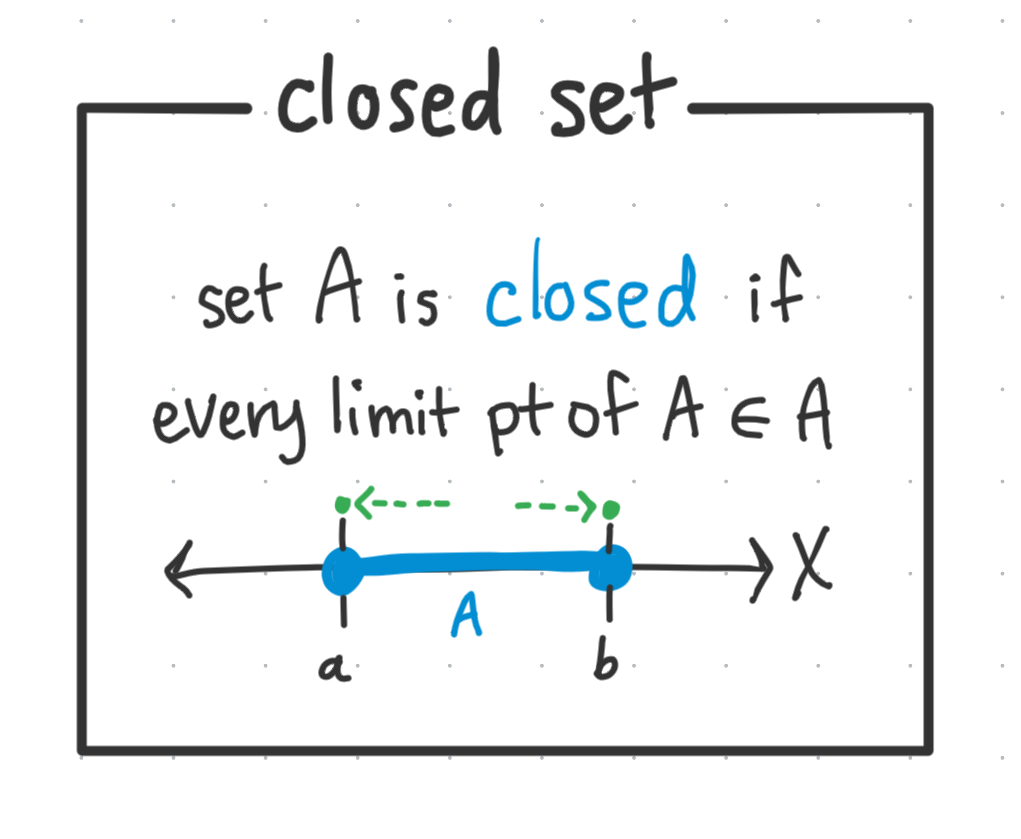 closed set
set A is closed if
every limit pt of A ∈ A
X
A
a b